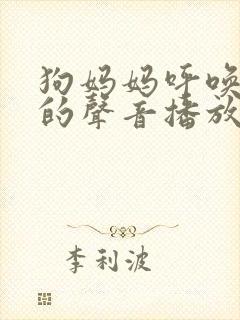 狗妈妈呼唤
的聲音播放
李利波